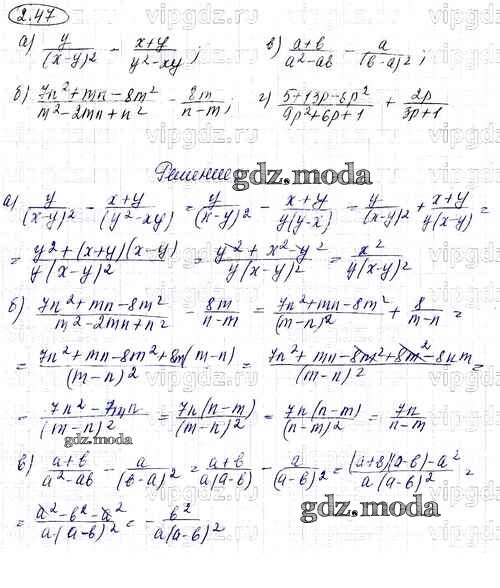 2.47
а) y/(x-y)² - x+y/y²-xy; в) a+b/a²-ab - a/(b-a)²;
б) 7n²+mn-8m²/m²-2mn+n² - 8m/n-m; г) 5+13p-6p²/9p²+6p+1 + 2p/3p+1
Решение
gdz.moda
а) y/(x-y)² - x+y/(y²-xy) = y/(x-y)² - x+y/y(y-x) = y/(x-y)² + x+y/y(x-y) =
= y²+(x+y)(x-y)/y(x-y)² = y²+x²-y²/y(x-y)² = x²/y(x-y)²
б) 7n²+mn-8m²/m²-2mn+n² - 8m/n-m = 7n²+mn-8m²/(m-n)² + 8/m-n =
= 7n²+mn-8m²+8m(m-n)/(m-n)² = 7n²+mn-8m²+8m²-8nm/(m-n)² =
= 7n²-7mn/(m-n)² = 7n(n-m)/(m-n)² = 7n(n-m)/(n-m)² = 7n/n-m
gdz.moda
в) a+b/a²-ab - a/(b-a)² = a+b/a(a-b) - a/(a-b)² = (a+b)(a-b)-a²/a(a-b)² =
= a²-b²-a²/a(a-b)² = - b²/a(a-b)²
gdz.moda
vipgdz.ru